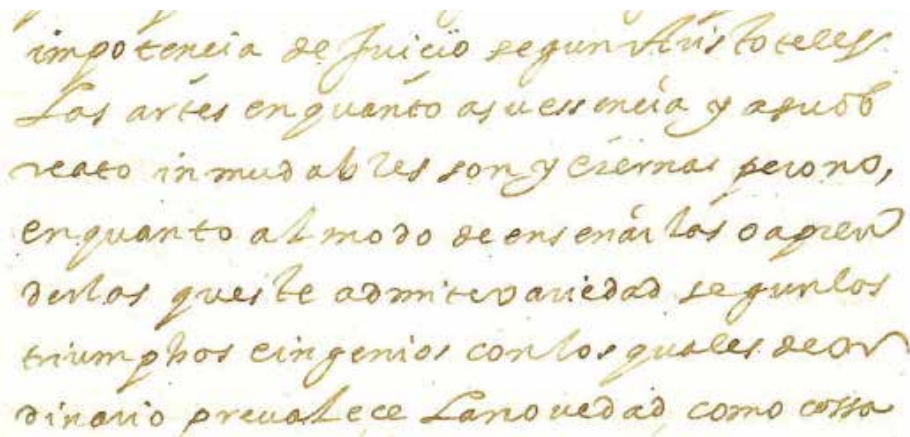 impotencia de Juicio segun Aristoteles
Las artes enquanto asu essencia y asu ob
reato inmudables son y eternas pero no,
enquanto al modo de enseñarlas o apren
derlas queste admite variedad segun los
triumphos e ingenios con los quales de or
dinario prevalece La novedad como cossa